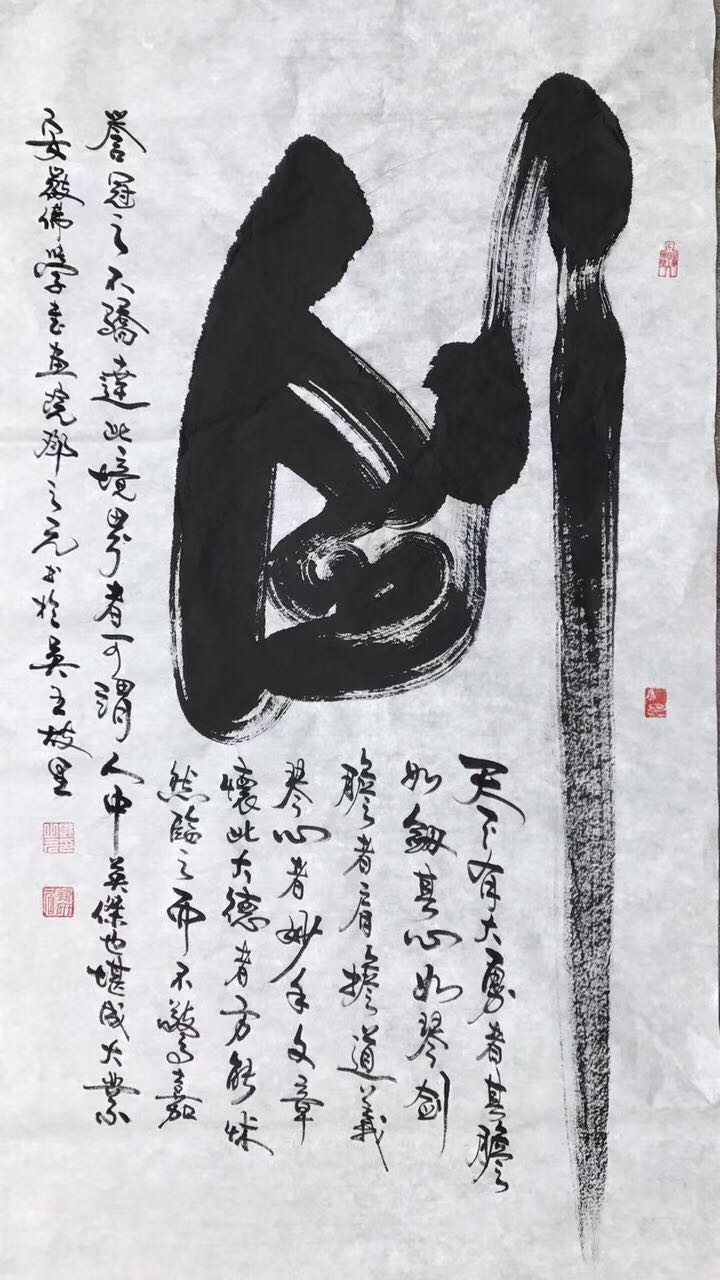 剑
天下有大勇者其膽
如劔其心如琴剑
膽者肩擔道義
琴心者妙手文章
懷此大德者方能怵
然臨之而不驚嘉
譽冠之不驕達此境界者可謂人中英傑也堪成大業
安徽佛學書画院鄧之元书於吳王故里